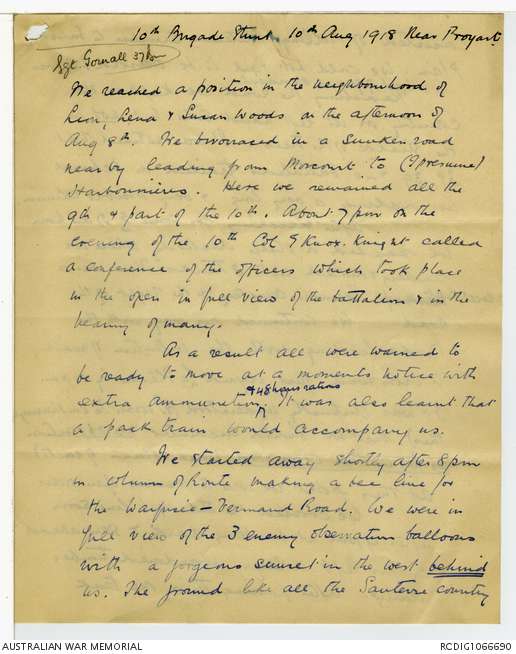 10th Brigade Stunt 10th Aug 1918 Near Proyart.
Sgt. Gornall 37 Bn
We reached a position in the neighbourhood of
Lion, Lena & Susan Woods on the afternoon of
Aug 8th. We bivouaced in a sunken road
nearby leading from Morcourt to (I presume)
Harbonnières. Here we remained all the
9th & part of the 10th. About 7 pm on the
evening of the 10th Col E Knox-Knight called
a conference of the officers which took place
in the open in full view of the battalion & in the
hearing of many.
As a result all were warned to
be ready to move at a moments notice with
& 48 hours rations
extra ammunition. It was also learnt that
a pack train would accompany us.
We started away shortly after 8 pm
in column of route making a bee line for
the Warfusée - Vermand Road. We were in
full view of the 3 enemy observation balloons
with a gorgeous sunset in the west behind
us. The ground like all the Santerre country
AUSTRALIAN WAR MEMORIAL
RCDIG1066690